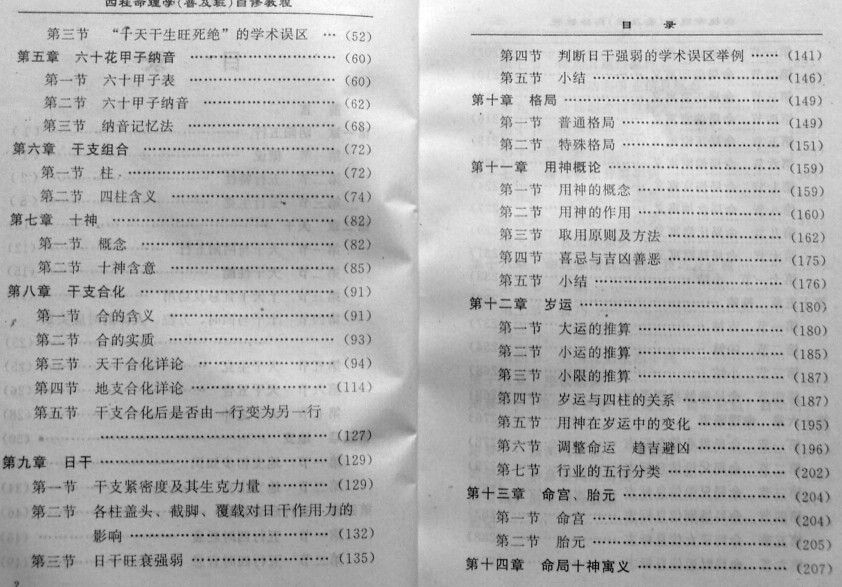 四柱命理学(普及班)自修教程
第三节 “十天干生旺死绝”的学术误区 … (52)
第五章 六十花甲子纳音 …………………… (60)
第一节 六十甲子表 …………………… (60)
第二节 六十甲子纳音 …………………… (62)
第三节 纳音记忆法 …………………… (68)
第六章 干支组合 …………………… (72)
第一节 柱 …………………… (72)
第二节 四柱含义 …………………… (74)
第七章 十神 …………………… (82)
第一节 概念 …………………… (82)
第二节 十神含意 …………………… (85)
第八章 干支合化 …………………… (91)
第一节 合的含义 …………………… (91)
第二节 合的实质 …………………… (93)
第三节 天干合化详论 …………………… (94)
第四节 地支合化详论 …………………… (114)
第五节 干支合化后是否由一行变为另一行
…………………… (127)
第九章 日干 …………………… (129)
第一节 干支紧密度及其生克力量 ………… (129)
第二节 各柱盖头、截脚、覆载对日干作用力的
影响 …………………… (132)
第三节 日干旺衰强弱 …………………… (135)
2
目 录
第四节 判断日干强弱的学术误区举例 …… (141)
第五节 小结 …………………… (146)
第十章 格局 …………………… (149)
第一节 普通格局 …………………… (149)
第二节 特殊格局 …………………… (151)
第十一章 用神概论 …………………… (159)
第一节 用神的概念 …………………… (159)
第二节 用神的作用 …………………… (160)
第三节 取用原则及方法 …………………… (162)
第四节 喜忌与吉凶善恶 …………………… (175)
第五节 小结 …………………… (176)
第十二章 岁运 …………………… (180)
第一节 大运的推算 …………………… (180)
第二节 小运的推算 …………………… (185)
第三节 小限的推算 …………………… (187)
第四节 岁运与四柱的关系 …………………… (187)
第五节 用神在岁运中的变化 …………… (195)
第六节 调整命运 趋吉避凶 …………… (196)
第七节 行业的五行分类 …………………… (202)
第十三章 命宫、胎元 …………………… (204)
第一节 命宫 …………………… (204)
第二节 胎元 …………………… (205)
第十四章 命局十神寓义 …………………… (207)